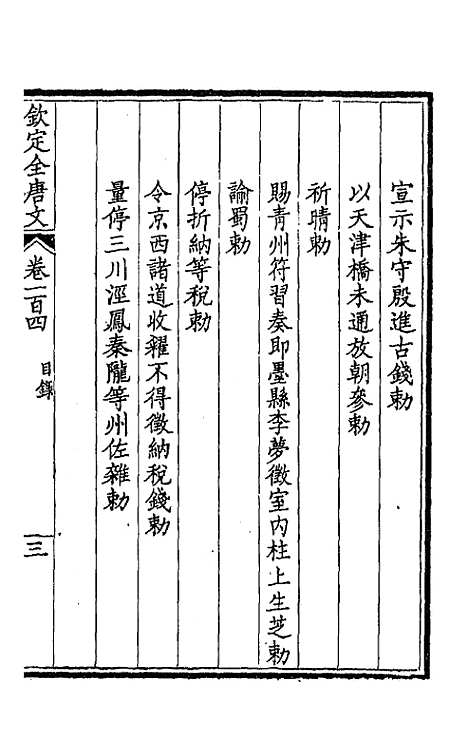 宣示朱守殷進古錢勅
以天津橋未通放朝參勅
祈晴勅
賜青州符習奏即墨縣李夢徵室內柱上生芝勅
諭蜀勅
停折納等稅勅
令京西諸道收糴不得徵納稅錢勅
量停三川涇鳳秦隴等州佐雜勅
欽定全唐文
卷一百四
目錄
三